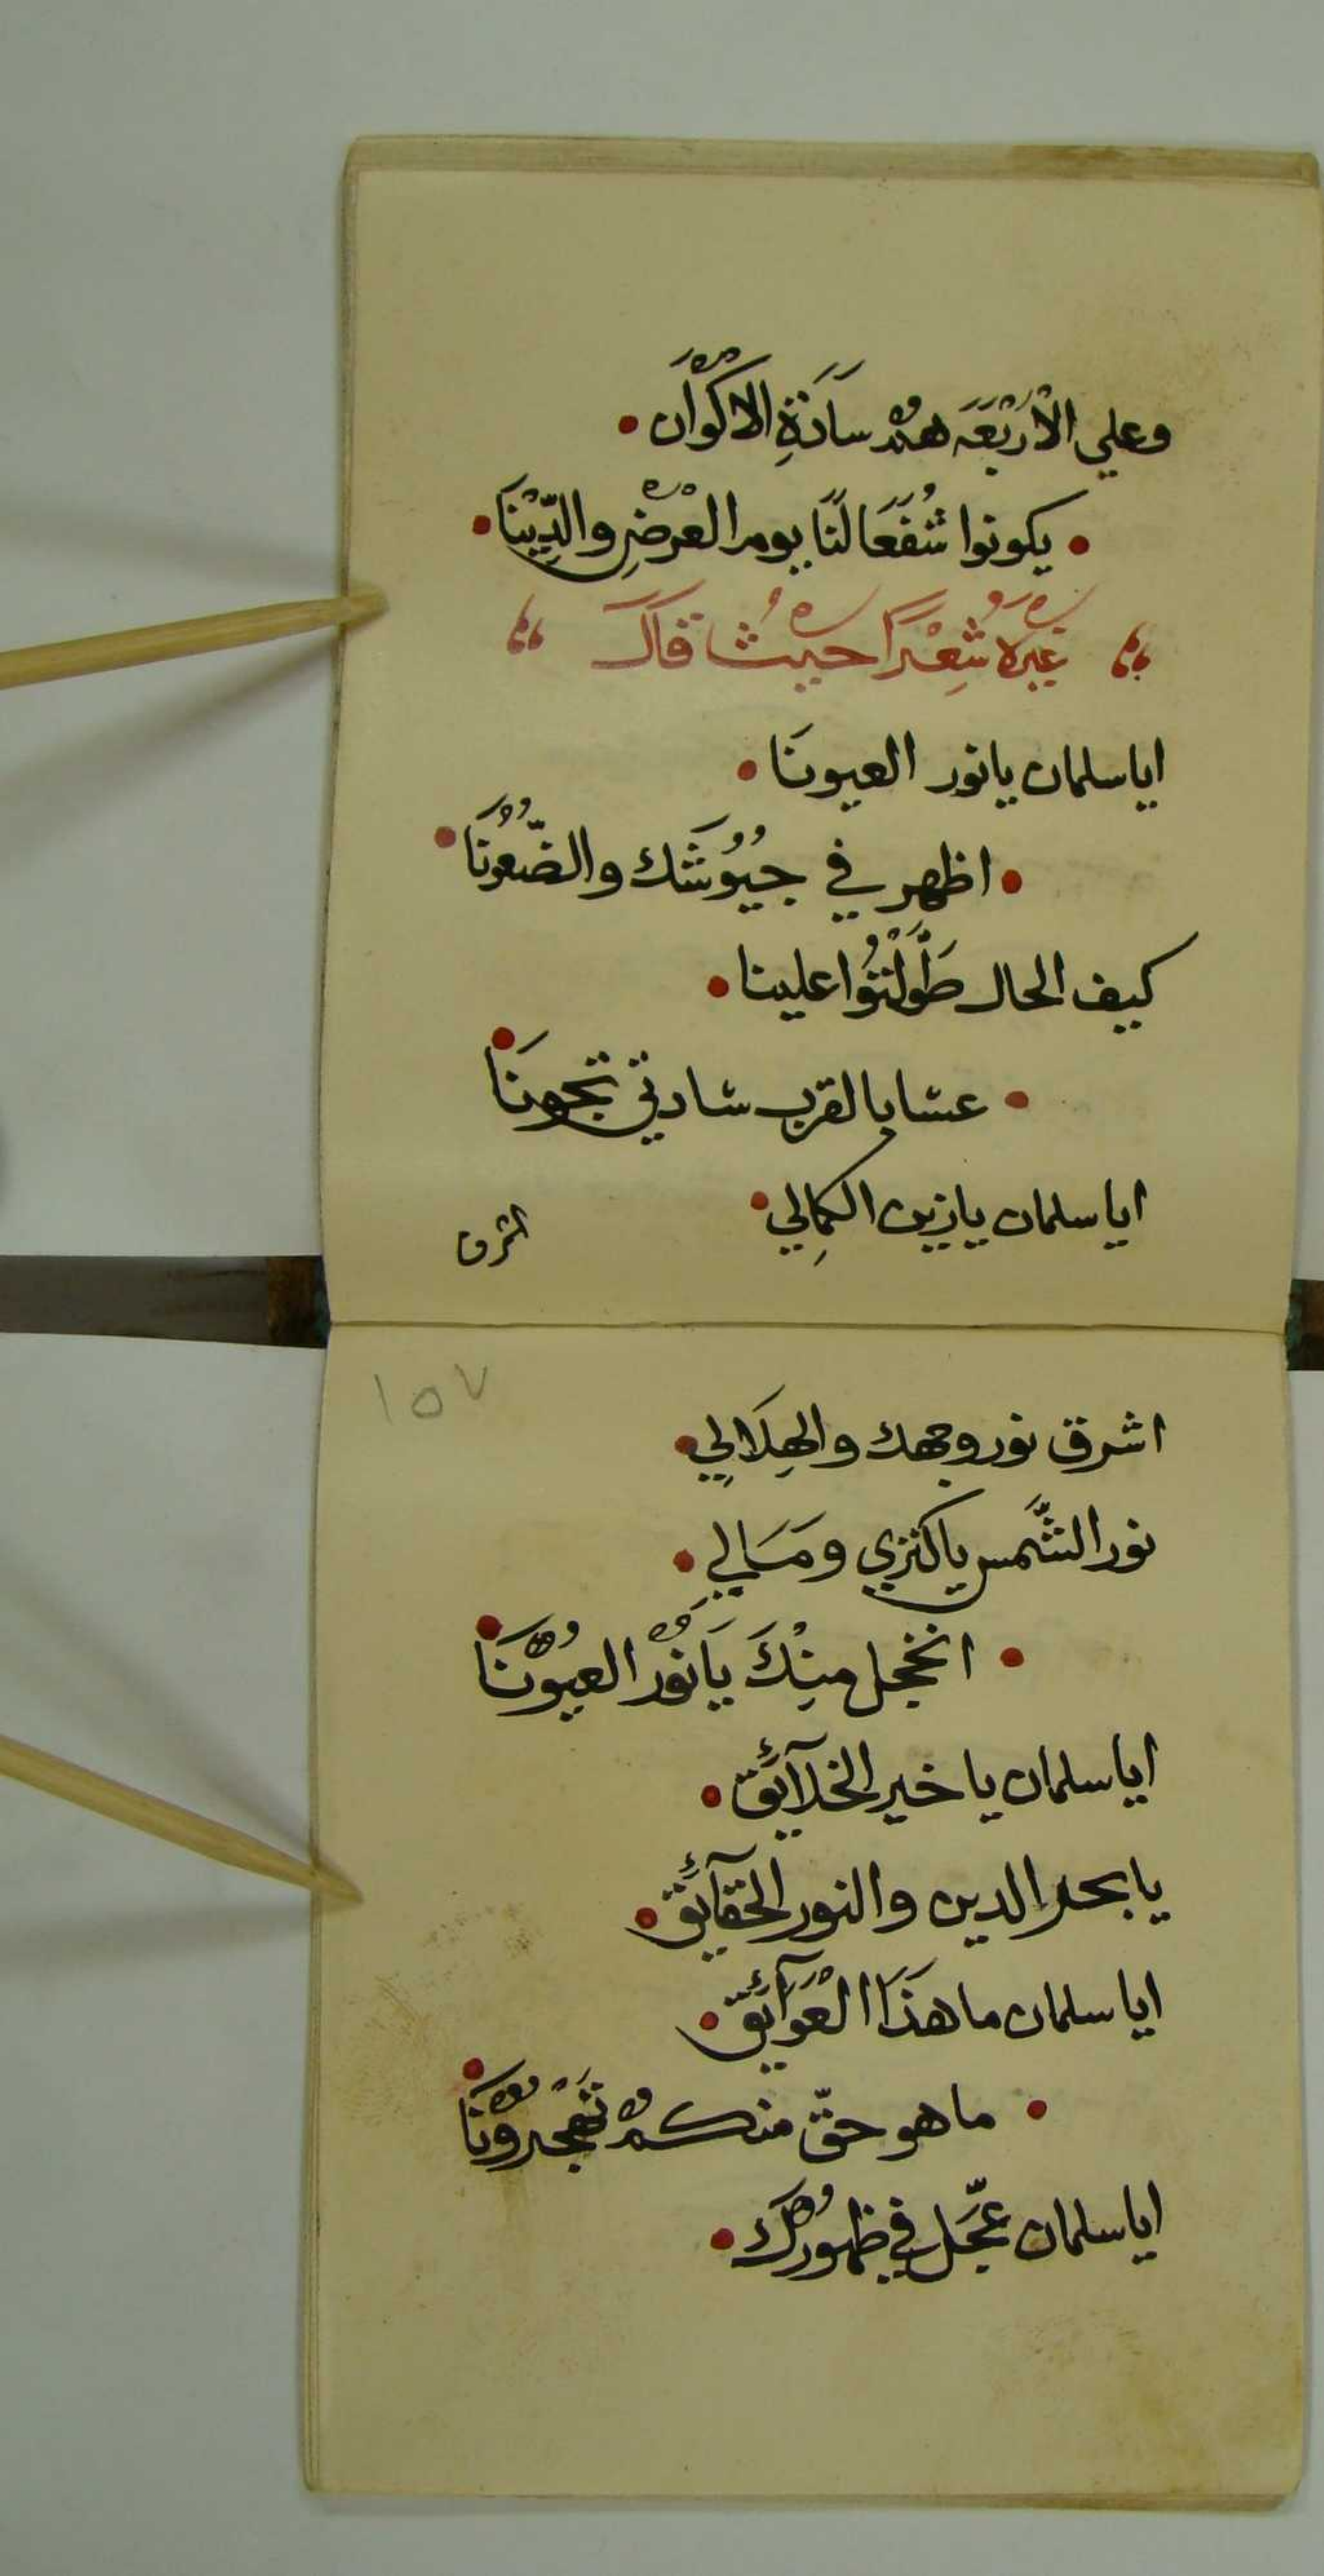 وعلي الْاَرْبَعَه هُمْ سَادَةِ الاكْوَان •
• يكونوا شُفَعَا لَنَا يوم العْرْضِ والدِّيْنَا •
غَيْرُه شِعْرًا حيْثُ قال
ايا سلمان يا نور العيونَا •
• اظهر في جيُوُشَك والضّعُوُنَا •
كيف الحال طَوَّلْتُوا علينا •
• عسا بالقرب سادتي تجونَا •
ايا سلمان يا زين الكمِالي •
اشرق
١٥٧
اشرق نور وجهك والهِلَالِي •
نور الشَّمس يا كنزي ومَالي •
• انخجل منِْكَ يَا نُوْرَ العيُوْنَا •
ايا سلمان يا خير الخلآئق •
يا بحر الدين والنور الحقآئق •
ايا سلمان ما هذَا الْعَوَآئق •
• ما هو حقّ منكمْ تهْجروْنَا •
ايا سلمان عجّل في ظهُورَك •